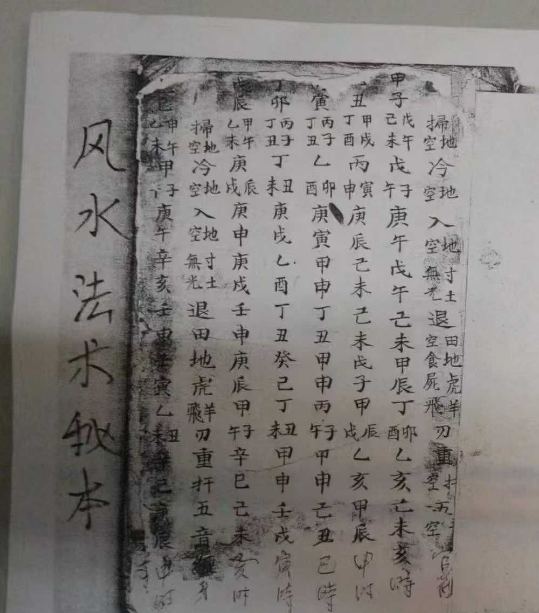 掃地空冷地空入地空寸土無光退田地空食虎屍羊飛刃重
甲子戊午己未戊子午庚午戊午己未甲辰丁卯酉乙亥己未亥時
丑甲戌丁酉丙寅申庚辰己未己未戊子甲辰戌乙亥甲辰申时
寅丙子丁丑乙卯酉庚寅甲申丁丑甲申丙子午甲申己丑巳時
卯丙子丁丑丁丑未庚戌乙酉丁丑癸巳丁丑未甲申壬戌寅時
辰甲午乙未庚辰戌庚申庚戌壬申庚辰甲子午辛巳己未亥时
掃地空冷地空入地空寸土無光退田地虎羊飛刃重扞五音
巳甲午乙未甲子庚午辛亥壬申壬寅乙丑未申时
风水法术秘本